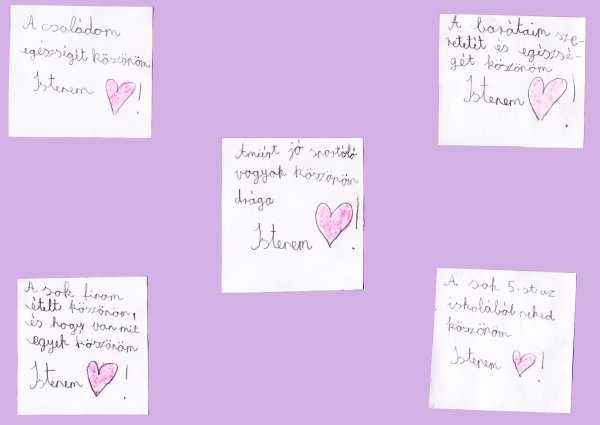 A családom
egészségét köszönöm
Istenem !
A barátaim sze-
retetét és egészsé-
gét köszönöm
Istenem !
Amiért jó sportoló
vagyok köszönöm
drága
Istenem !
A sok finom
ételt köszönöm,
és hogy van mit
egyek köszönöm
Istenem !
A sok 5-st az
iskolából neked
köszönöm
Istenem !